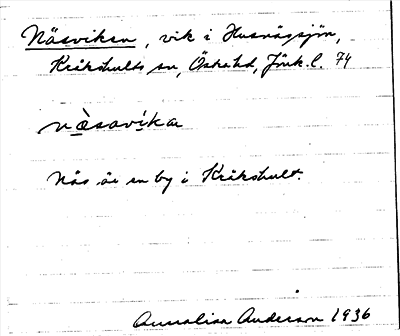 Näsviken, vik i Husnässjön,
Krikshults sn, Östra hd, Jönk. l. 74
næ̀savíka
Näs är en by i Krikshult.
Annalisa Anderson 1936